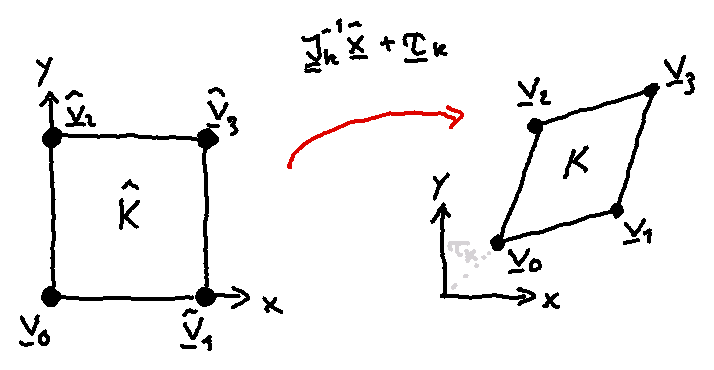 J̲̲ₖ⁻¹ x̲̂ + τ̲ₖ
y
v̲̂₂
v̲̂₃
K̂
v̲₀
v̲̂₁
x
v̲₂
v̲₃
K
y
τₖ
v̲₀
v̲₁
x